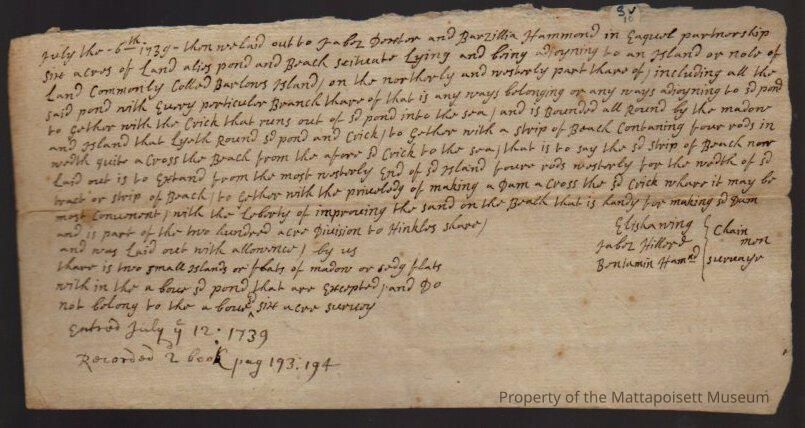 July the -6th- 1739 - then we laid out to Jabez Docter and Barzillia Hammond in Eaquel partnership
six acres of Land alies pond and Beach scituate Lying and being adjoyning to an Island or nole of
Land Commonly Colled Barlows Island, on the northerly and westerly part thare of, including all the
said pond with Every porticuler Branch thare of that is any ways belonging or any ways adjoyning to sd pond
to Gether with the Crick that runs out of sd pond into the sea, and is Bounded all Round by the madow
and Island that Lyeth Round sd pond and Crick, to Gether with a strip of Beach Containg foure rods in
wedth quite a Cross the Beach from the afore sd Crick to the sea, that is to say the sd strip of Beach now
Laid out is to Extand from the most westerly End of sd Island foure rods westerly for the wedth of sd
tract or strip of Beach, to Gether with the priveledg of making a Dam a Cross the sd Crick where it may be
most Convenent, with the Leborty of improveing the sand on the Beach that is handy for making sd Dam
and is part of the two hundred acre Division to Hinkles share,
and was Laid out with allowence, by us
Elisha wing
Jabez Hillerd
Benjamin Hamnd
Chain
men
survaye
thare is two small Islands or flats of madow or sedg flats
with in the a bove sd pond that are Excepted, and Do
not belong to the a boved six acre survay
Entred July ye 12. 1739
Recorded 2d book pag 193. 194
Property of the Mattapoisett Museum